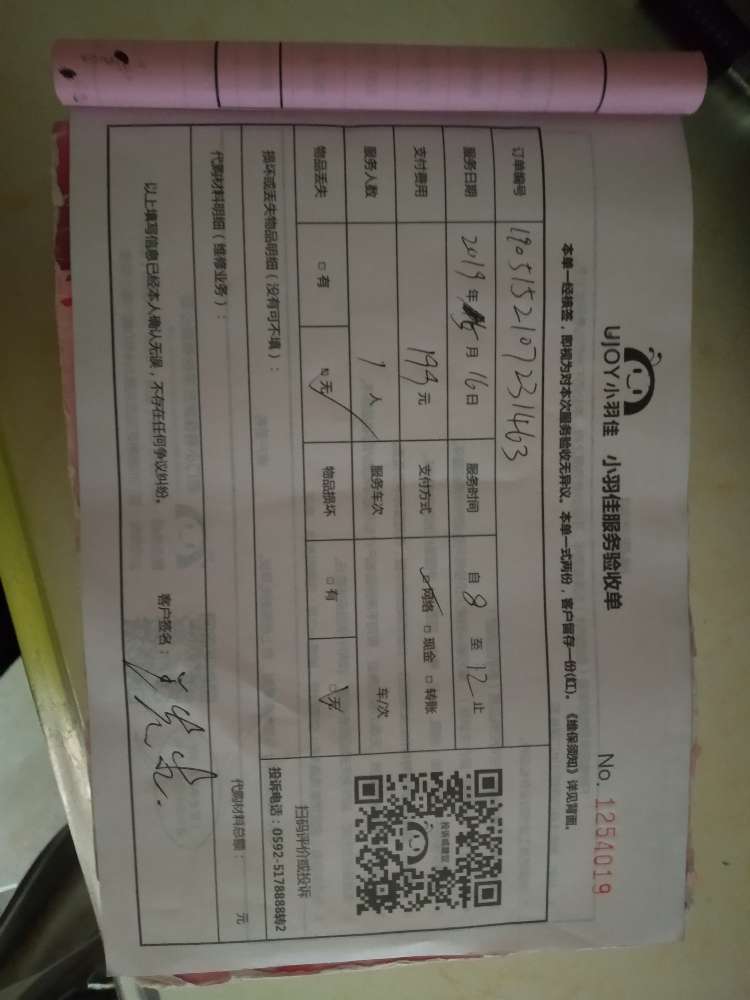 UJOY小羽佳 小羽佳服务验收单
No. 1254019
本单一经核签，即视为对本次服务验收无异议。本单一式两份，客户留存一份(红)。《维保须知》详见背面。
订单编号 1905152107231463
服务日期 2019年 5月 16日 服务时间 自 8 至 12 止
支付费用 194元 支付方式 ☑网络 □现金 □转账
服务人数 1人 服务车次 车/次
物品丢失 □有 ☑无 物品损坏 □有 ☑无
投诉或建议
扫码评价或投诉
损坏或丢失物品明细（没有可不填）：
投诉电话：0592-5178888转2
代购材料明细（维修业务）： 代购材料总额： 元
以上填写信息已经本人确认无误，不存在任何争议纠纷。
客户签名：